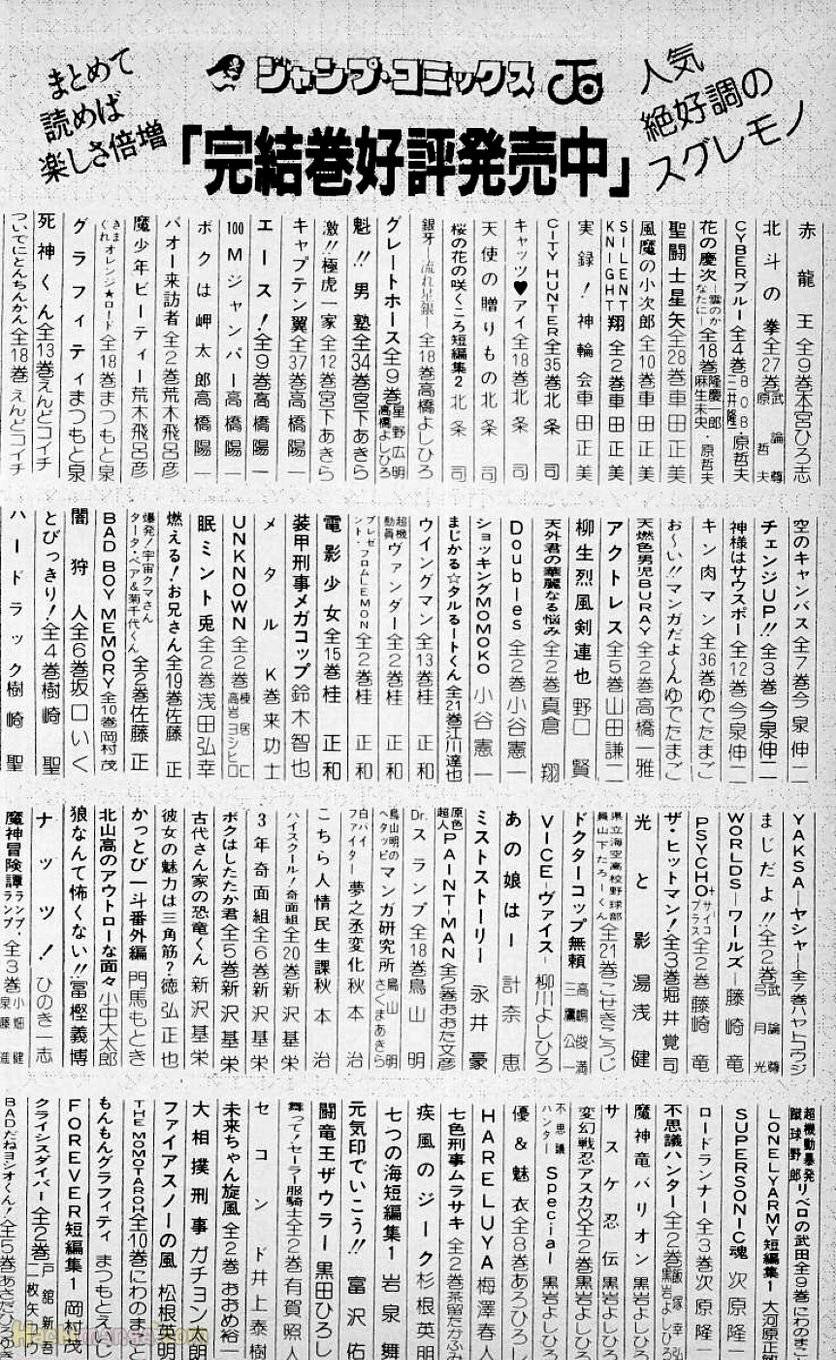 まとめて
読めば
楽しさ倍増
ジャンプ・コミックス
人気
絶好調の
スグレモノ
「完結巻好評発売中」
赤龍王全9巻本宮ひろ志
北斗の拳全27巻武論尊 原哲夫
CYBERブルー全4巻BOB・原哲夫 三井隆一
花の慶次―雲のかなたに―全18巻隆慶一郎・原哲夫 麻生未央
聖闘士星矢全28巻車田正美
風魔の小次郎全10巻車田正美
SILENT KNIGHT翔全2巻車田正美
実録!神輪会車田正美
CITY HUNTER全35巻北条司
キャッツ♥アイ全18巻北条司
天使の贈りもの北条司
桜の花の咲くころ短編集2北条司
銀牙―流れ星銀―全18巻高橋よしひろ
グレートホース全9巻星野広明 高橋よしひろ
魁!!男塾全34巻宮下あきら
激!!極虎一家全12巻宮下あきら
キャプテン翼全37巻高橋陽一
エース!全9巻高橋陽一
100Mジャンパー高橋陽一
ボクは岬太郎高橋陽一
バオー来訪者全2巻荒木飛呂彦
魔少年ビーティー荒木飛呂彦
きまぐれオレンジ★ロード全18巻まつもと泉
グラフィティまつもと泉
死神くん全13巻えんどコイチ
ついでにとんちんかん全18巻えんどコイチ
空のキャンバス全7巻今泉伸二
チェンジUP!!全3巻今泉伸二
神様はサウスポー全12巻今泉伸二
キン肉マン全36巻ゆでたまご
お〜い!!マンガだよ〜んゆでたまご
天燃色男児BURAY全2巻高橋一雅
アクトレス全5巻山田謙二
柳生烈風剣連也野口賢
天外君の華麗なる悩み全2巻真倉翔
Doubles全2巻小谷憲一
ショッキングMOMOKO小谷憲一
まじかる☆タルるートくん全21巻江川達也
ウイングマン全13巻桂正和
超機動員ヴァンダー全2巻桂正和
プレゼント・フロムLEMON全2巻桂正和
電影少女全15巻桂正和
装甲刑事メガコップ鈴木智也
メタルK巻来功士
UNKNOWN全2巻棟居仁 高岩ヨシヒロ
眠兎全2巻浅田弘幸
燃える!お兄さん全19巻佐藤正
爆発!宇宙クマさん タータ・ベア&菊千代くん全2巻佐藤正
BAD BOY MEMORY全10巻岡村茂
闇狩人全6巻坂口いく
とびっきり!全4巻樹崎聖
ハードラック樹崎聖
YAKSA―ヤシャ―全7巻ハヤトコウジ
まじだよ!!全2巻武論尊 弓月光
WORLDS―ワールズ―藤崎竜
PSYCHO+サイコプラス全2巻藤崎竜
ザ・ヒットマン!全3巻堀井覚司
光と影湯浅健
県立海空高校野球部員山下たろーくん全21巻こせきこうじ
ドクターコップ無頼高嶋俊満 三鷹公一
VICE―ヴァイス―柳川よしひろ
あの娘は― 計奈恵
ミストストーリー永井豪
原色超人PAINT-MAN全2巻おおた文彦
Dr.スランプ全18巻鳥山明
鳥山明のヘタッピマンガ研究所鳥山明 さくまあきら
白バイファイター夢之丞変化秋本治
こちら人情民生課秋本治
ハイスクール!奇面組全20巻新沢基栄
3年奇面組全6巻新沢基栄
ボクはしたたか君全5巻新沢基栄
古代さん家の恐竜くん新沢基栄
彼女の魅力は三角筋?徳弘正也
かっとび一斗番外編門馬もとき
北山高のアウトローな面々小中大太郎
狼なんて怖くない!!冨樫義博
ナッツ!ひのき一志
魔神冒険譚ランプ・ランプ全3巻小畑健 泉藤進
超機動暴発蹴球野郎リベロの武田全9巻にわのまこと
LONELY ARMY短編集1大河原正敏
SUPERSONIC魂次原隆二
ロードランナー全3巻次原隆二
不思議ハンター全2巻飯塚幸弘 黒岩よしひろ
魔神竜バリオン黒岩よしひろ
サスケ忍伝黒岩よしひろ
変幻戦忍アスカ♡全2巻黒岩よしひろ
不思議ハンターSpecial黒岩よしひろ
優&魅衣全8巻あろひろし
HARELUYA梅澤春人
七色刑事ムラサキ全2巻茶留たかふみ
疾風のジーク杉根英明
七つの海短編集1岩泉舞
元気印でいこう!!富沢佑
闘竜王ザウラー黒田ひろし
舞って!セーラー服騎士全2巻有賀照人
セコンド井上泰樹
未来ちゃん旋風全2巻おおめ裕一
大相撲刑事ガチョン太朗
ファイアスノーの風松根英明
THE MOMOTAROH全10巻にわのまこと
もんもんグラフィティまつもとえいじ
FOREVER短編集1岡村茂
クライシスダイバー全2巻戸舘新吾 二枚矢コウ
BADだねヨシオくん!全5巻あさだひろゆき